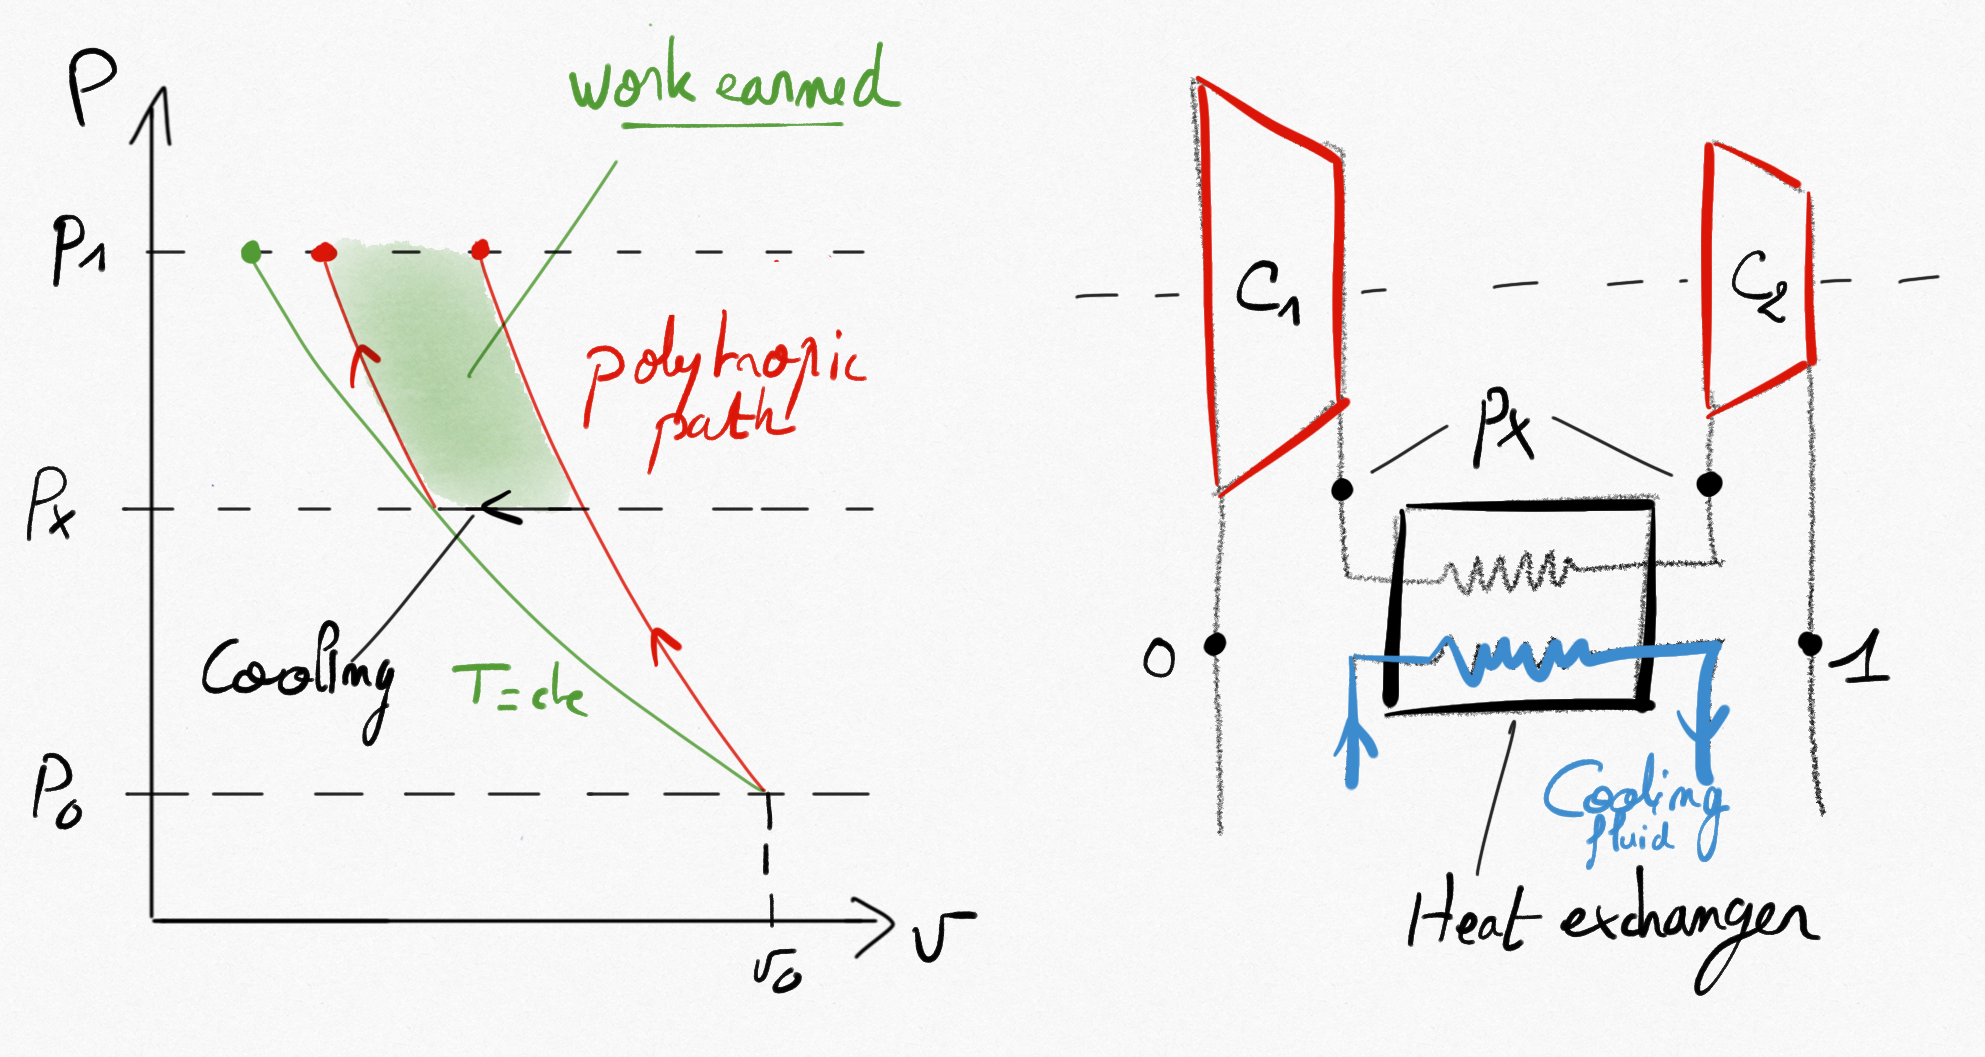 P
work earned
P1
polytropic
path
Px
Cooling
T=cte
P0
v0
v
C1
C2
Px
0
1
Cooling
fluid
Heat exchanger